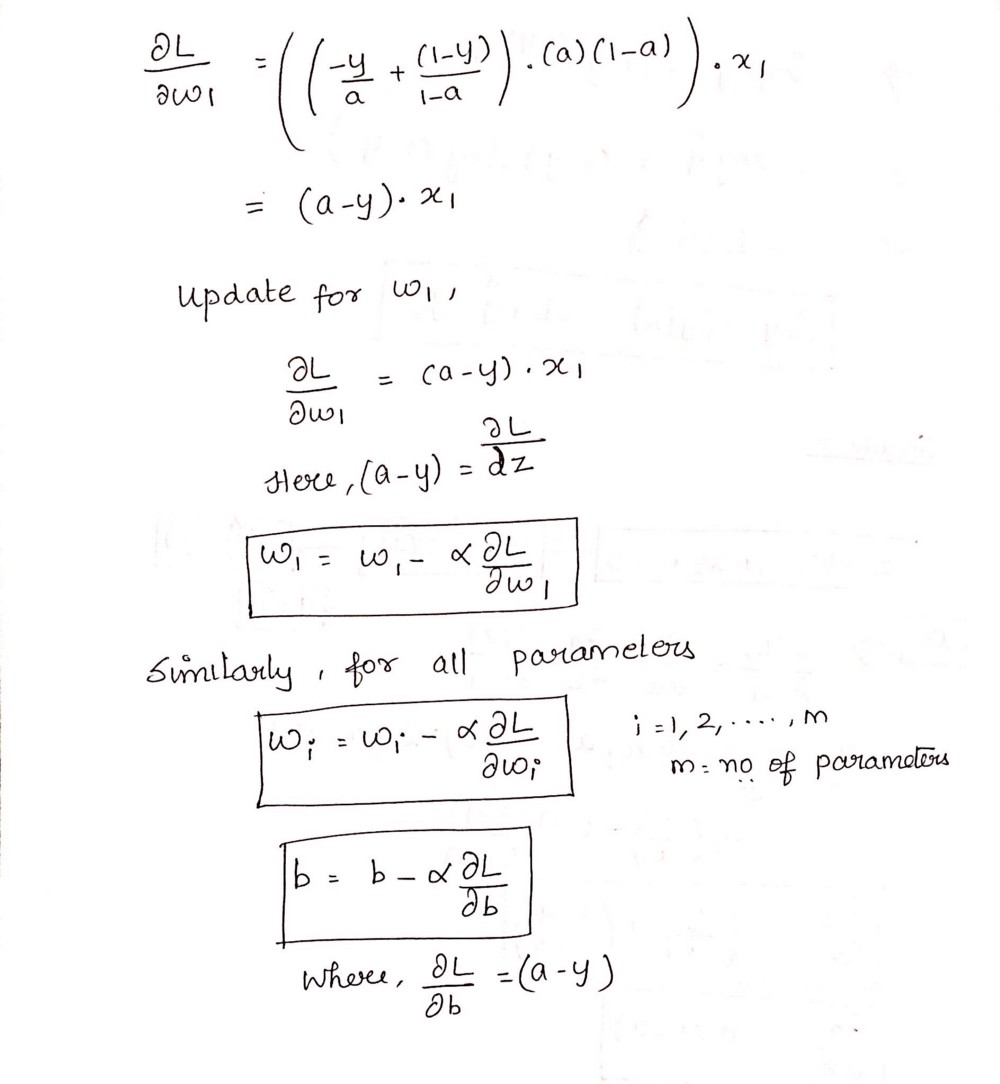 ∂L/∂w1 = ((-y/a + (1-y)/1-a) . (a)(1-a)) . x1
= (a-y). x1
update for w1,
∂L/∂w1 = (a-y) . x1
Here, (a-y) = ∂L/dz
w1 = w1 - α ∂L/∂w1
Similarly, for all parameters
wi = wi - α ∂L/∂wi   i=1, 2, ...., m
m= no of parameters
b = b - α ∂L/∂b
where, ∂L/∂b = (a-y)